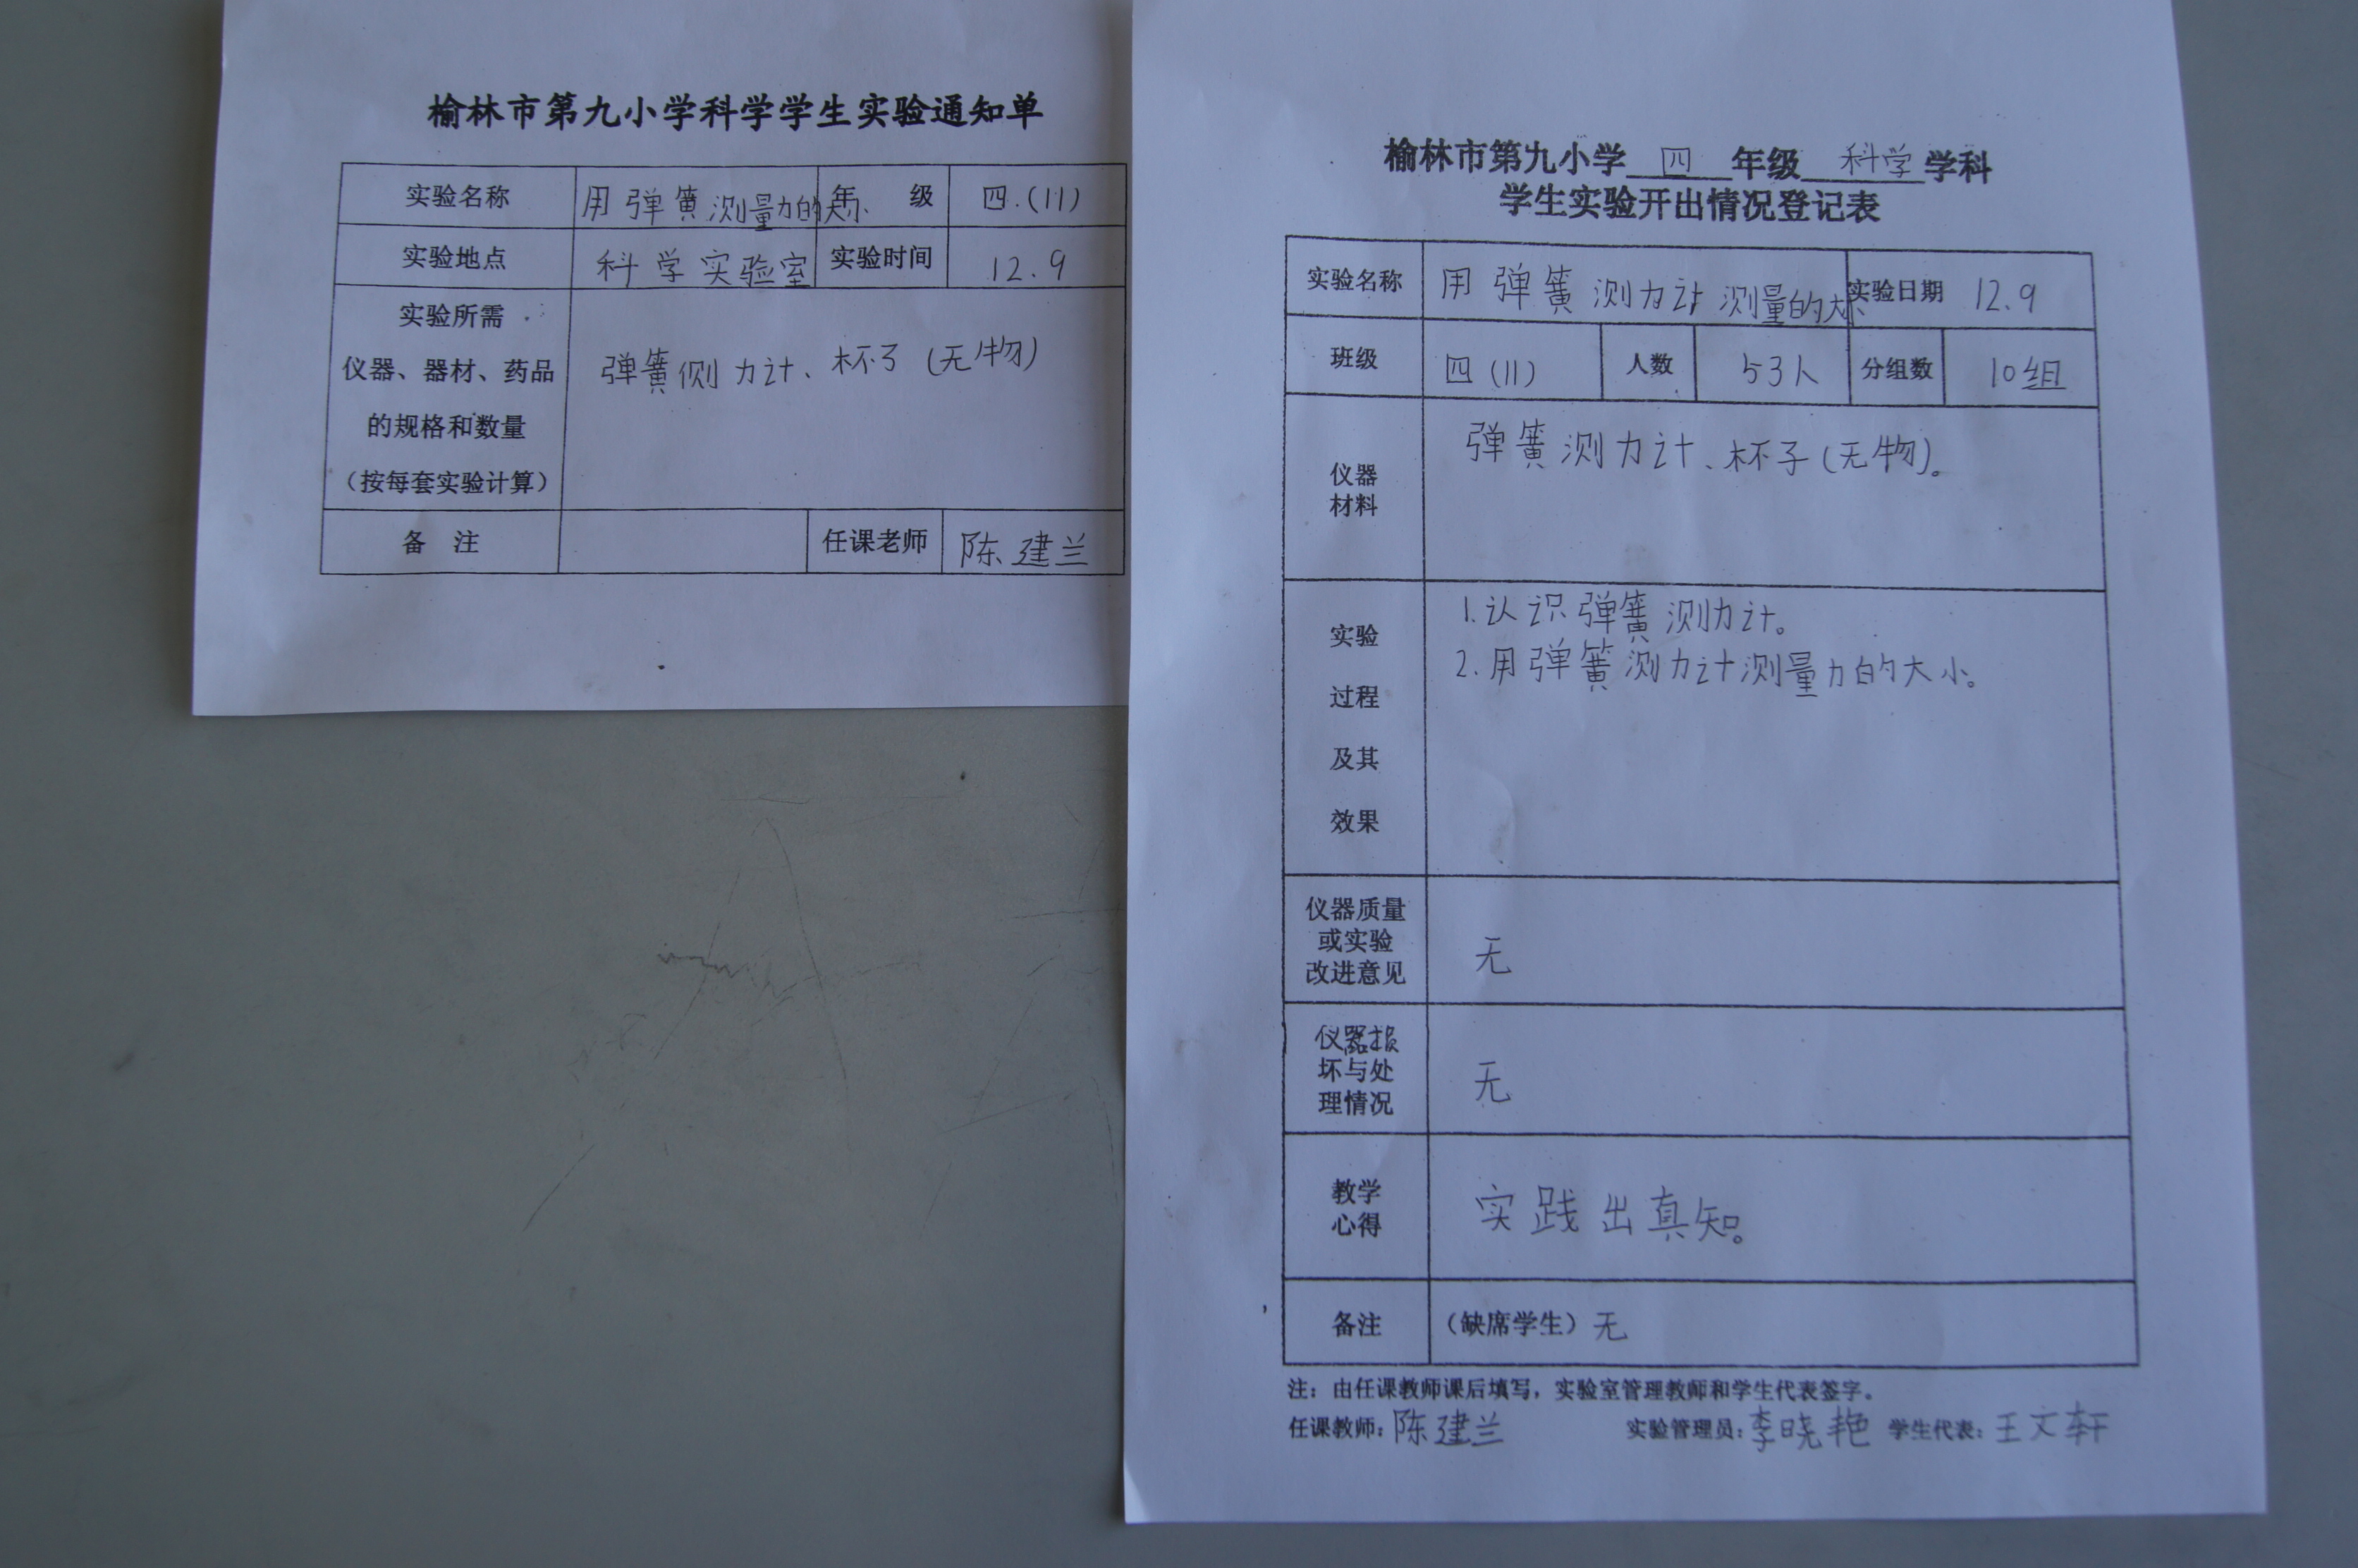 榆林市第九小学科学学生实验通知单
实验名称 用弹簧测量力的大小 年 级 四.(11)
实验地点 科学实验室 实验时间 12.9
实验所需
仪器、器材、药品
的规格和数量
(按每套实验计算)
弹簧侧力计、杯子(无物)
备 注 任课老师 陈建兰
榆林市第九小学 四 年级 科学 学科
学生实验开出情况登记表
实验名称 用弹簧测力计测量的大小 实验日期 12.9
班级 四(11) 人数 53人 分组数 10组
仪器
材料
弹簧测力计、杯子(无物)。
实验
过程
及其
效果
1.认识弹簧测力计。
2.用弹簧测力计测量力的大小。
仪器质量
或实验
改进意见
无
仪器损
坏与处
理情况
无
教学
心得
实践出真知。
备注 (缺席学生) 无
注：由任课教师课后填写，实验室管理教师和学生代表签字。
任课教师：陈建兰 实验管理员：李晓艳 学生代表：王文轩